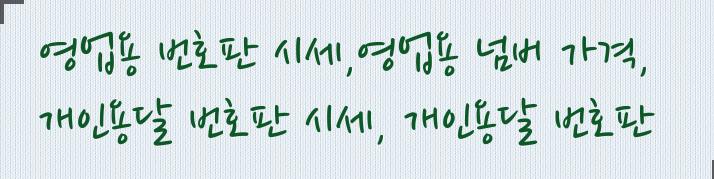 영업용 번호판 시세,영업용 넘버 가격,
개인용달 번호판 시세, 개인용달 번호판